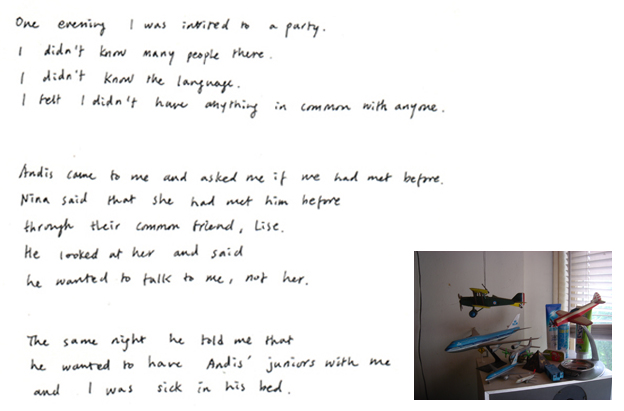 One evening I was invited to a party.
I didn't know many people there.
I didn't know the language.
I felt I didn't have anything in common with anyone.
Andis came to me and asked me if we had met before.
Nina said that she had met him before
through their common friend, Lise.
He looked at her and said
he wanted to talk to me, not her.
The same night he told me that
he wanted to have Andis' juniors with me
and I was sick in his bed.